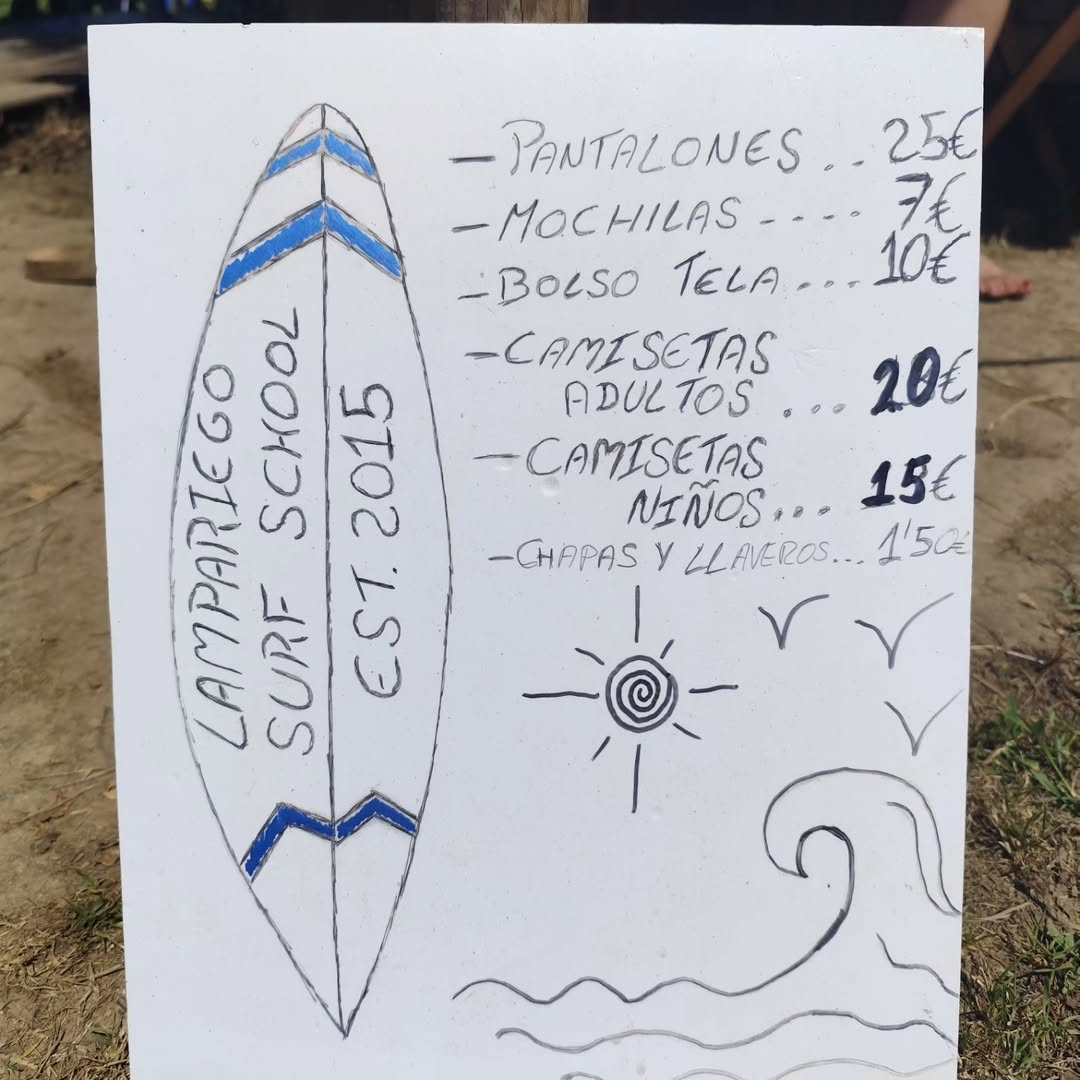 LAMPARIEGO
SURF SCHOOL
EST. 2015
- PANTALONES .. 25€
- MOCHILAS ---- 7€
- BOLSO TELA ... 10€
- CAMISETAS
ADULTOS ... 20€
- CAMISETAS
NIÑOS... 15€
- CHAPAS Y LLAVEROS... 1'50€